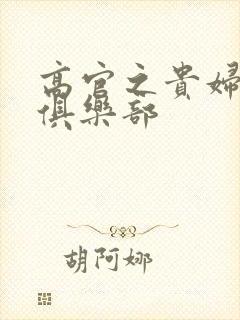 高官之貴婦
俱樂部
胡阿娜